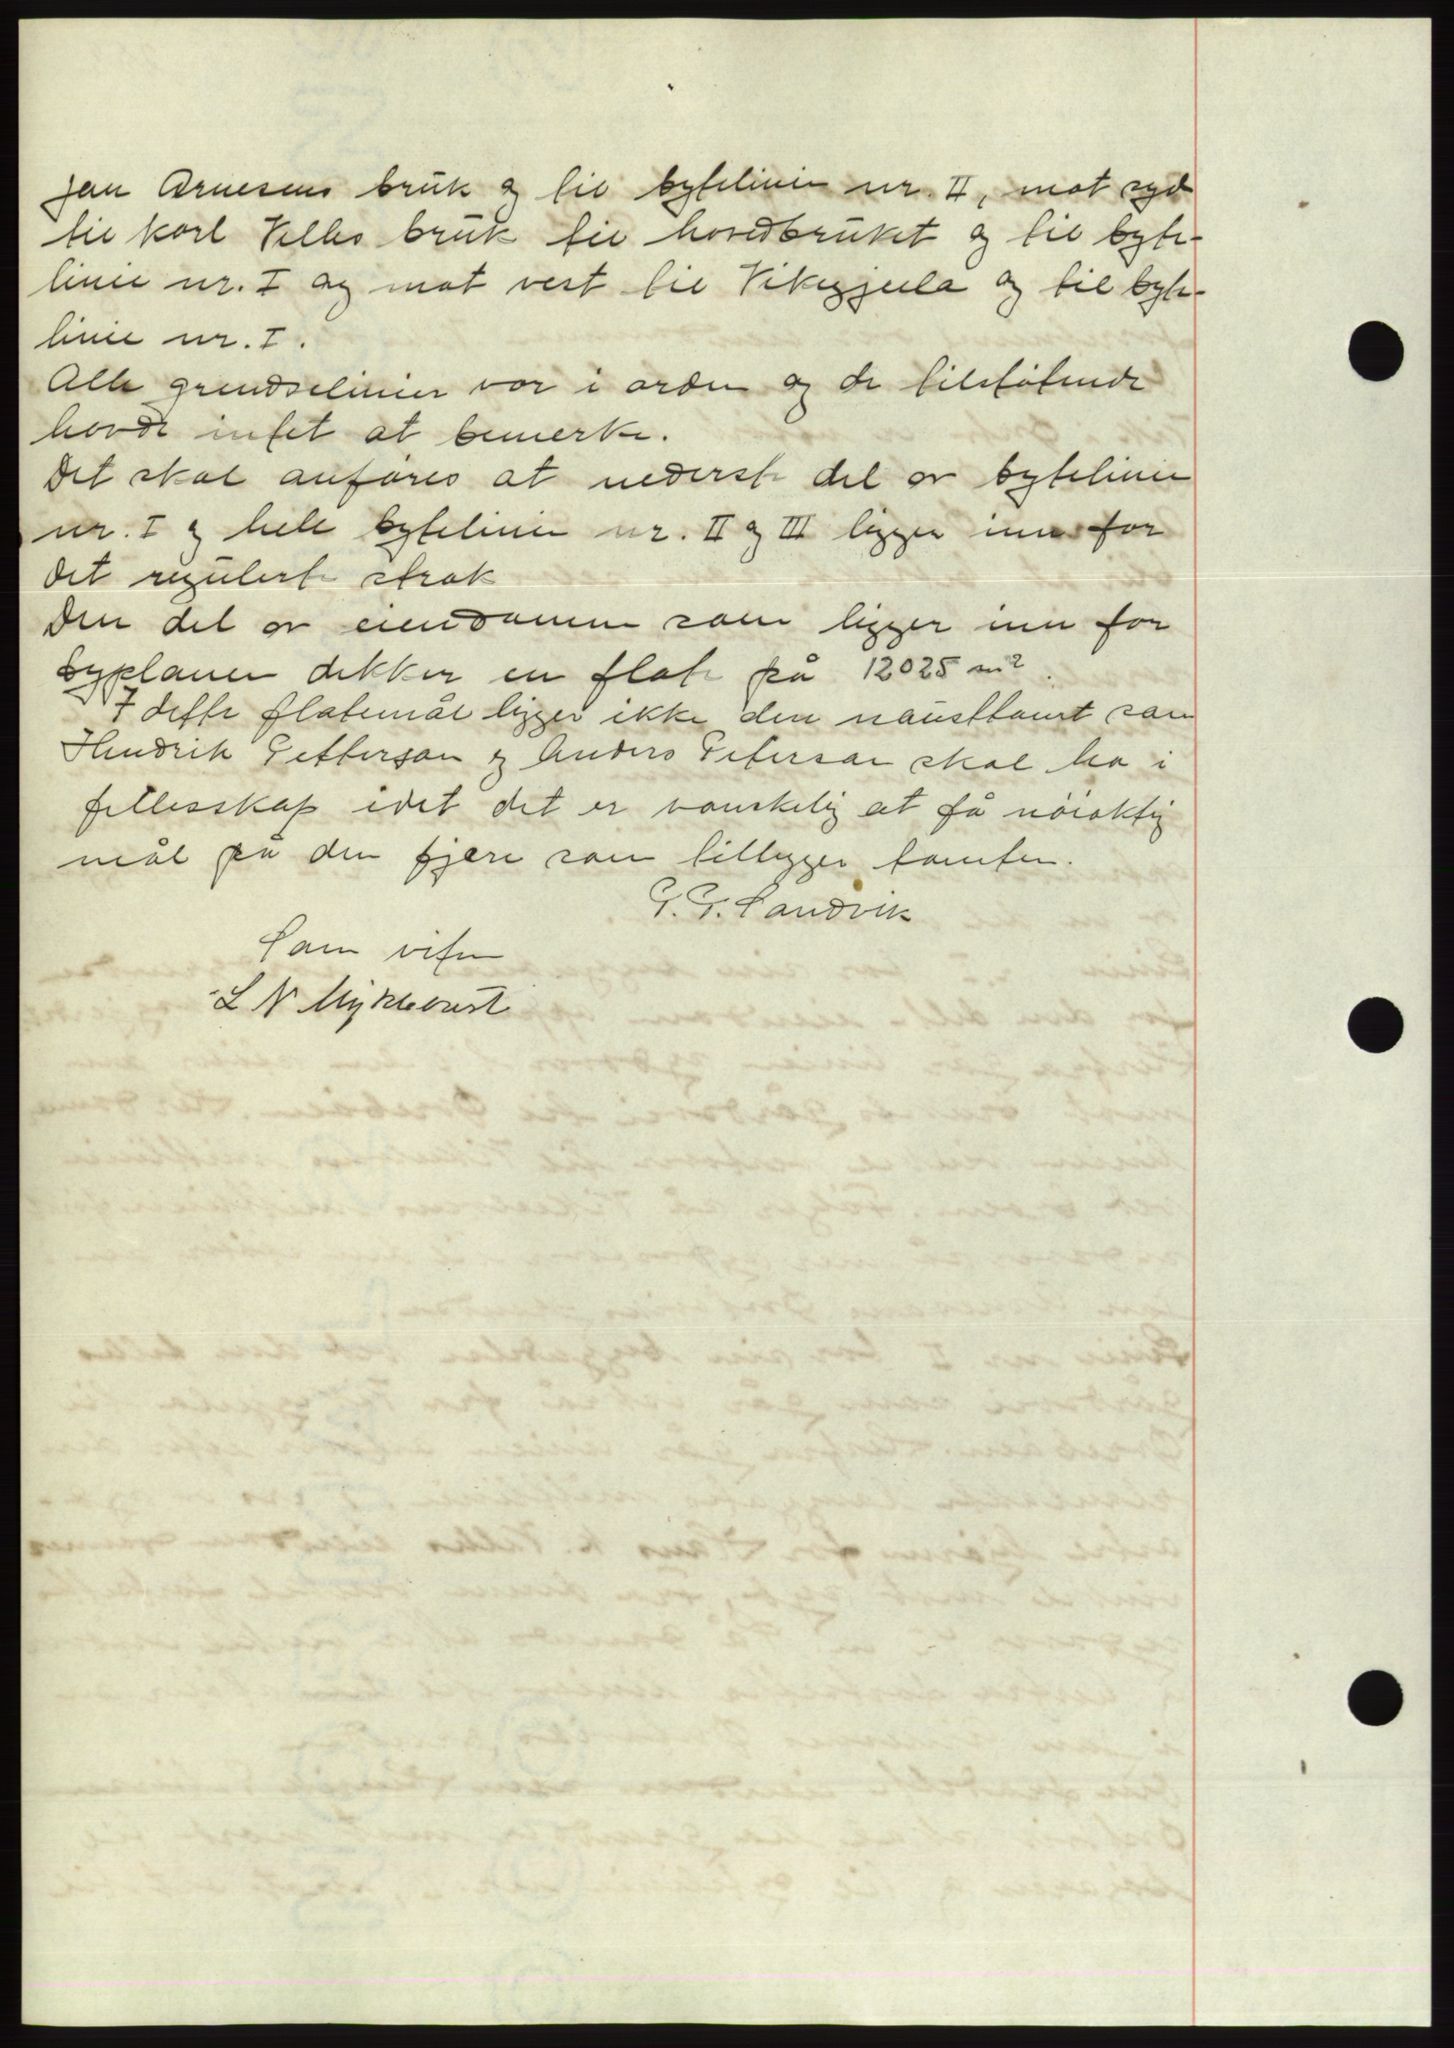 Jan Arnesens bruk og til bytelinie nr. II, mot syd
til Karl Velles bruk til hovedbruket og til byte-
linie nr. I og mot vest til Vikegjeila og til byte-
linie nr. I.
Alle grendselinier var i orden og de tilstøtende
havde intet at bemerke.
Det skal anføres at nederste del av bytelinie
nr. I og hele bytelinie nr. II og III ligger inn for
det regulerte strøk
Den del av eiendomen som ligger inn for
byplanen dekker en flate på 12025 m².
I dette flatemål ligger ikke den nausttomt som
Hendrik Petterson og Anders Peterson skal ha i
fellesskap idet det er vanskelig at få nøiaktig
mål på den fjære som tilligger tomten.
G. G. Sandvik
Som vitne
L N Myklebust